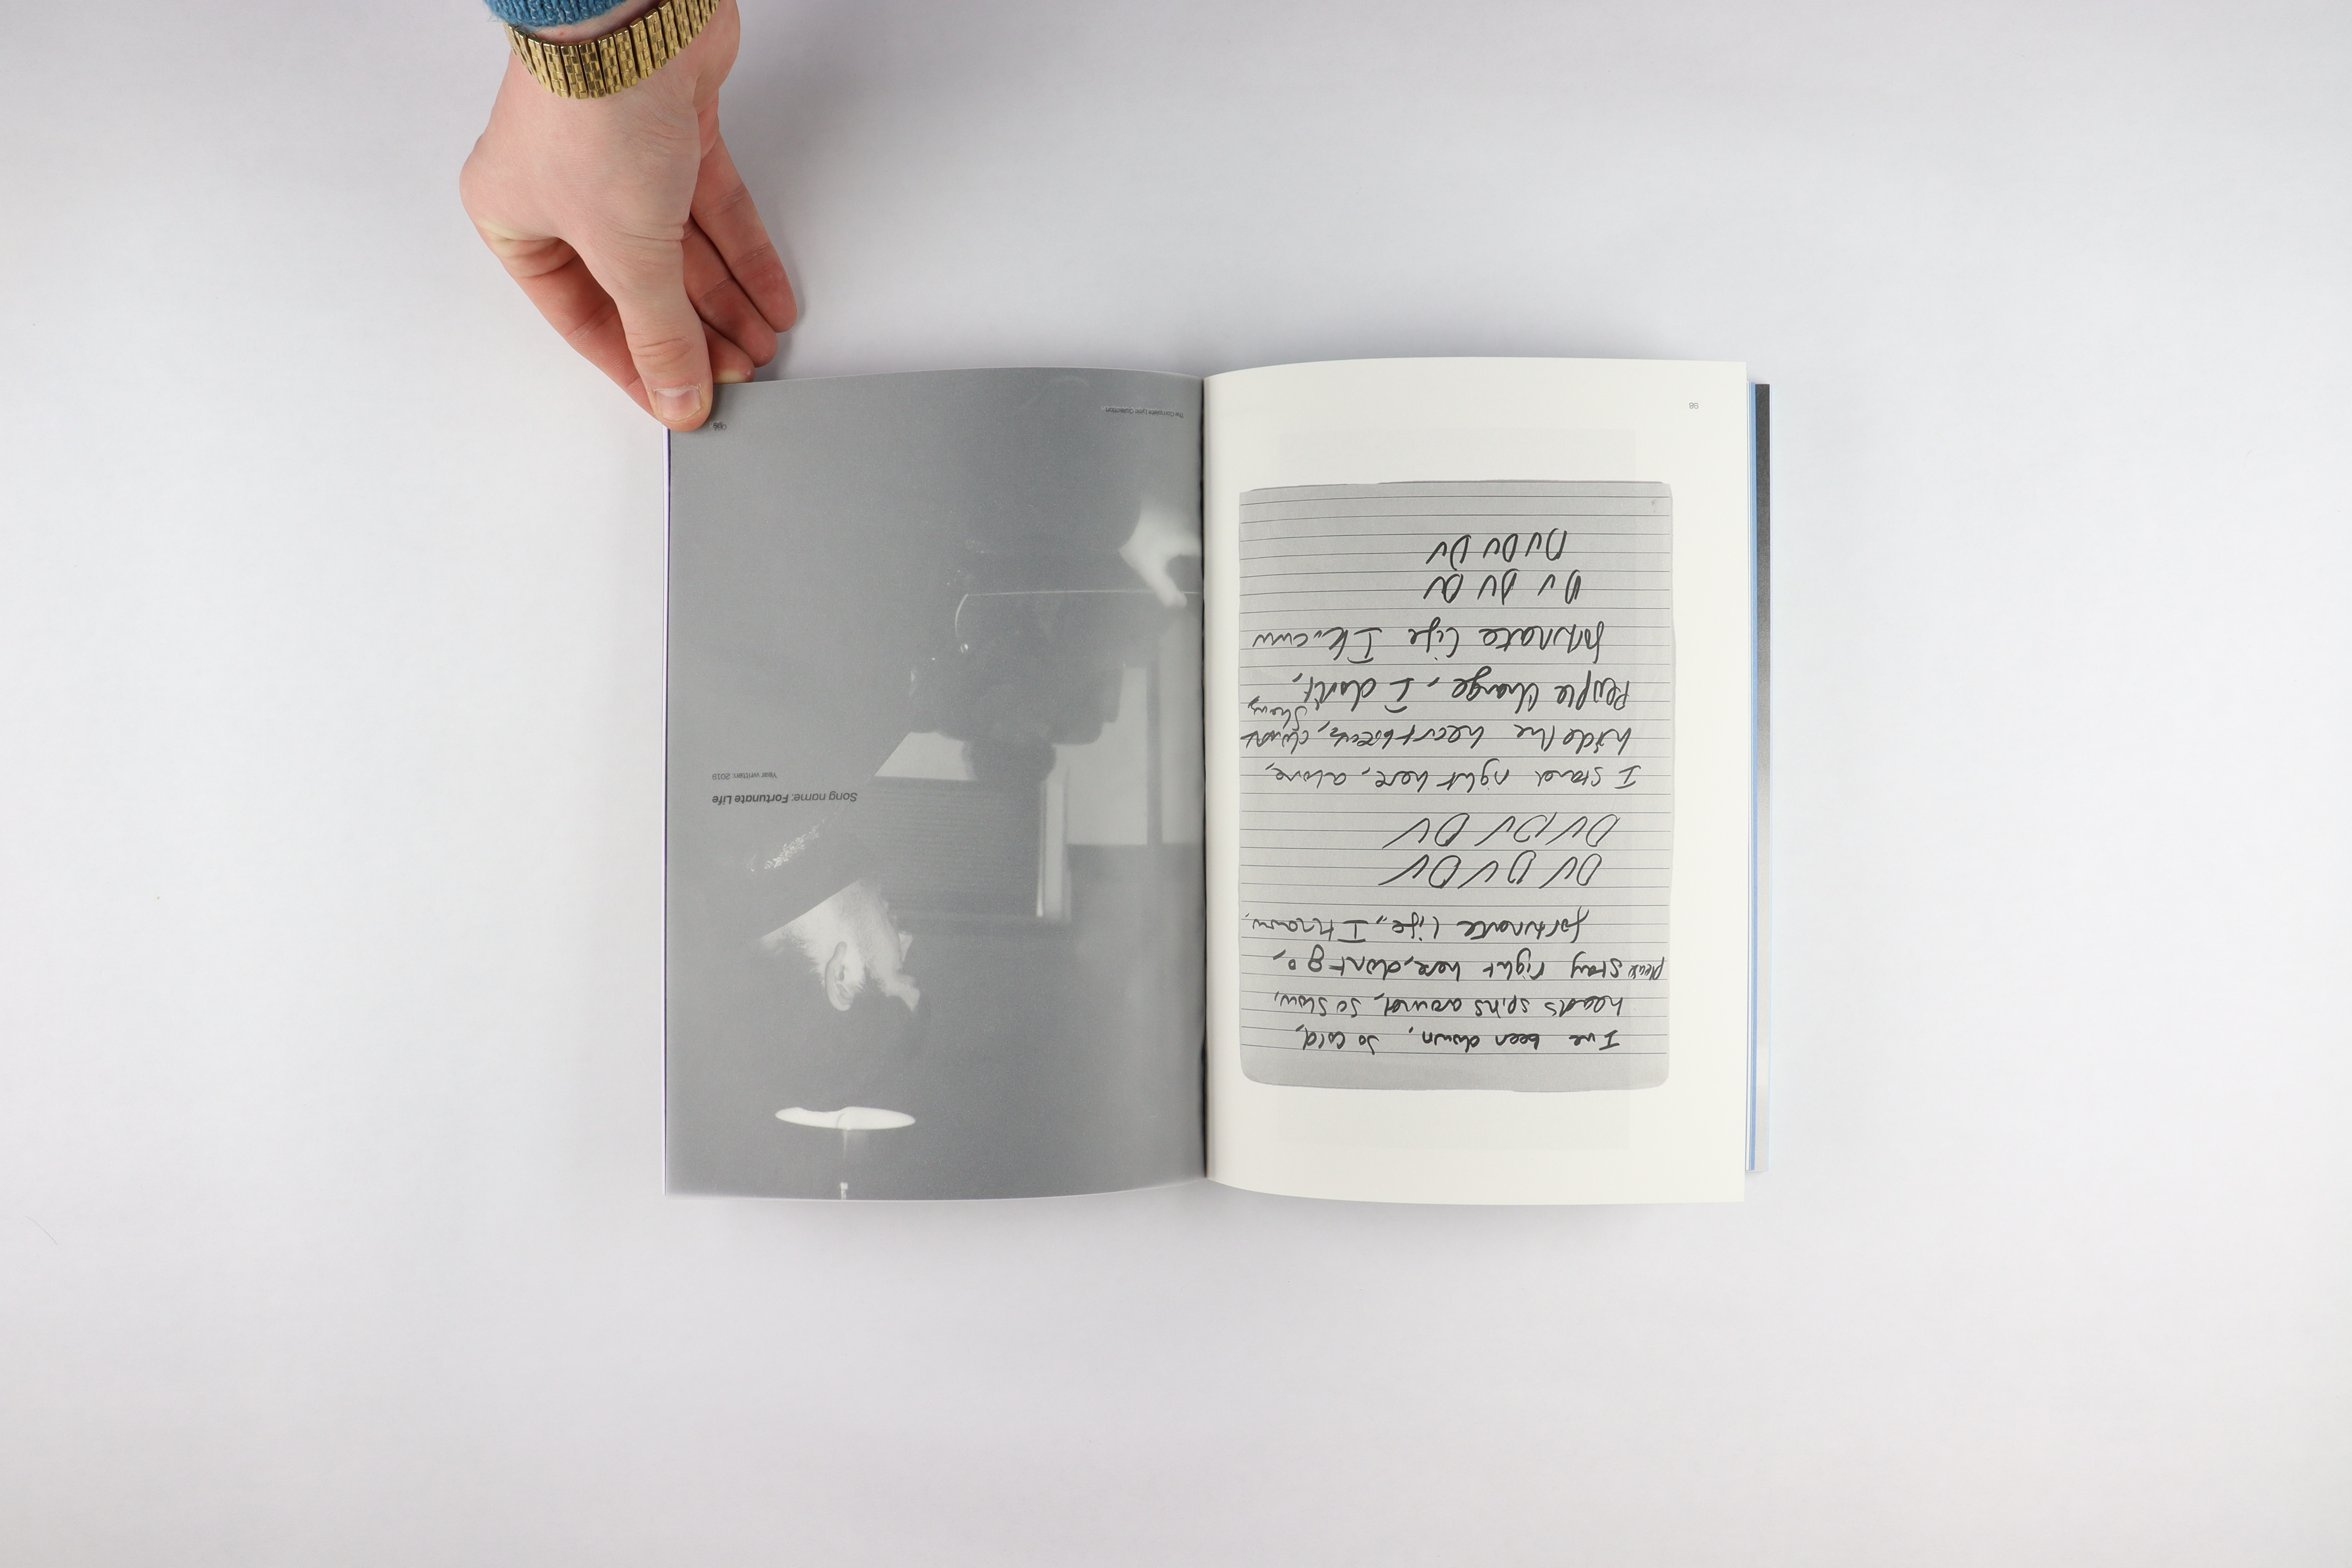 98
I've been down, so cold,
heads spins around, so slow,
please stay right here, don't go,
fortunate life, I know,
DU DU DU
DU DU DU
I stand right here, alone,
hide the heartbreak, don't
show,
People change, I don't,
fortunate life I know
DU DU DU
DU DU DU
Song name: Fortunate Life
Year written: 2019
The Complete Lyric Collection